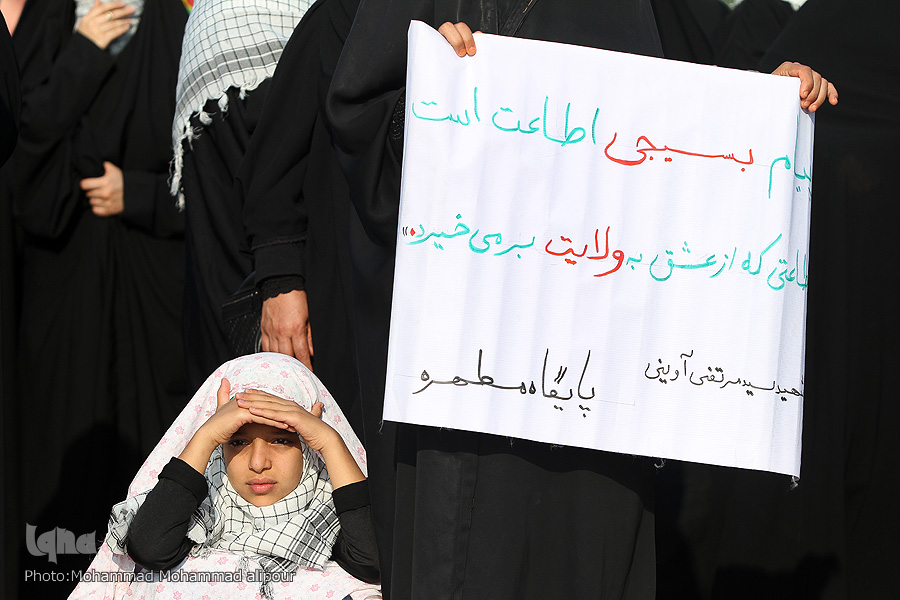 پیام بسیجی اطاعت است
اطاعتی که از عشق به ولایت بر می خیزد.»
شهید سید مرتضی آوینی
پایگاه مطهره
iqna
Photo:Mohammad Mohammad alipour